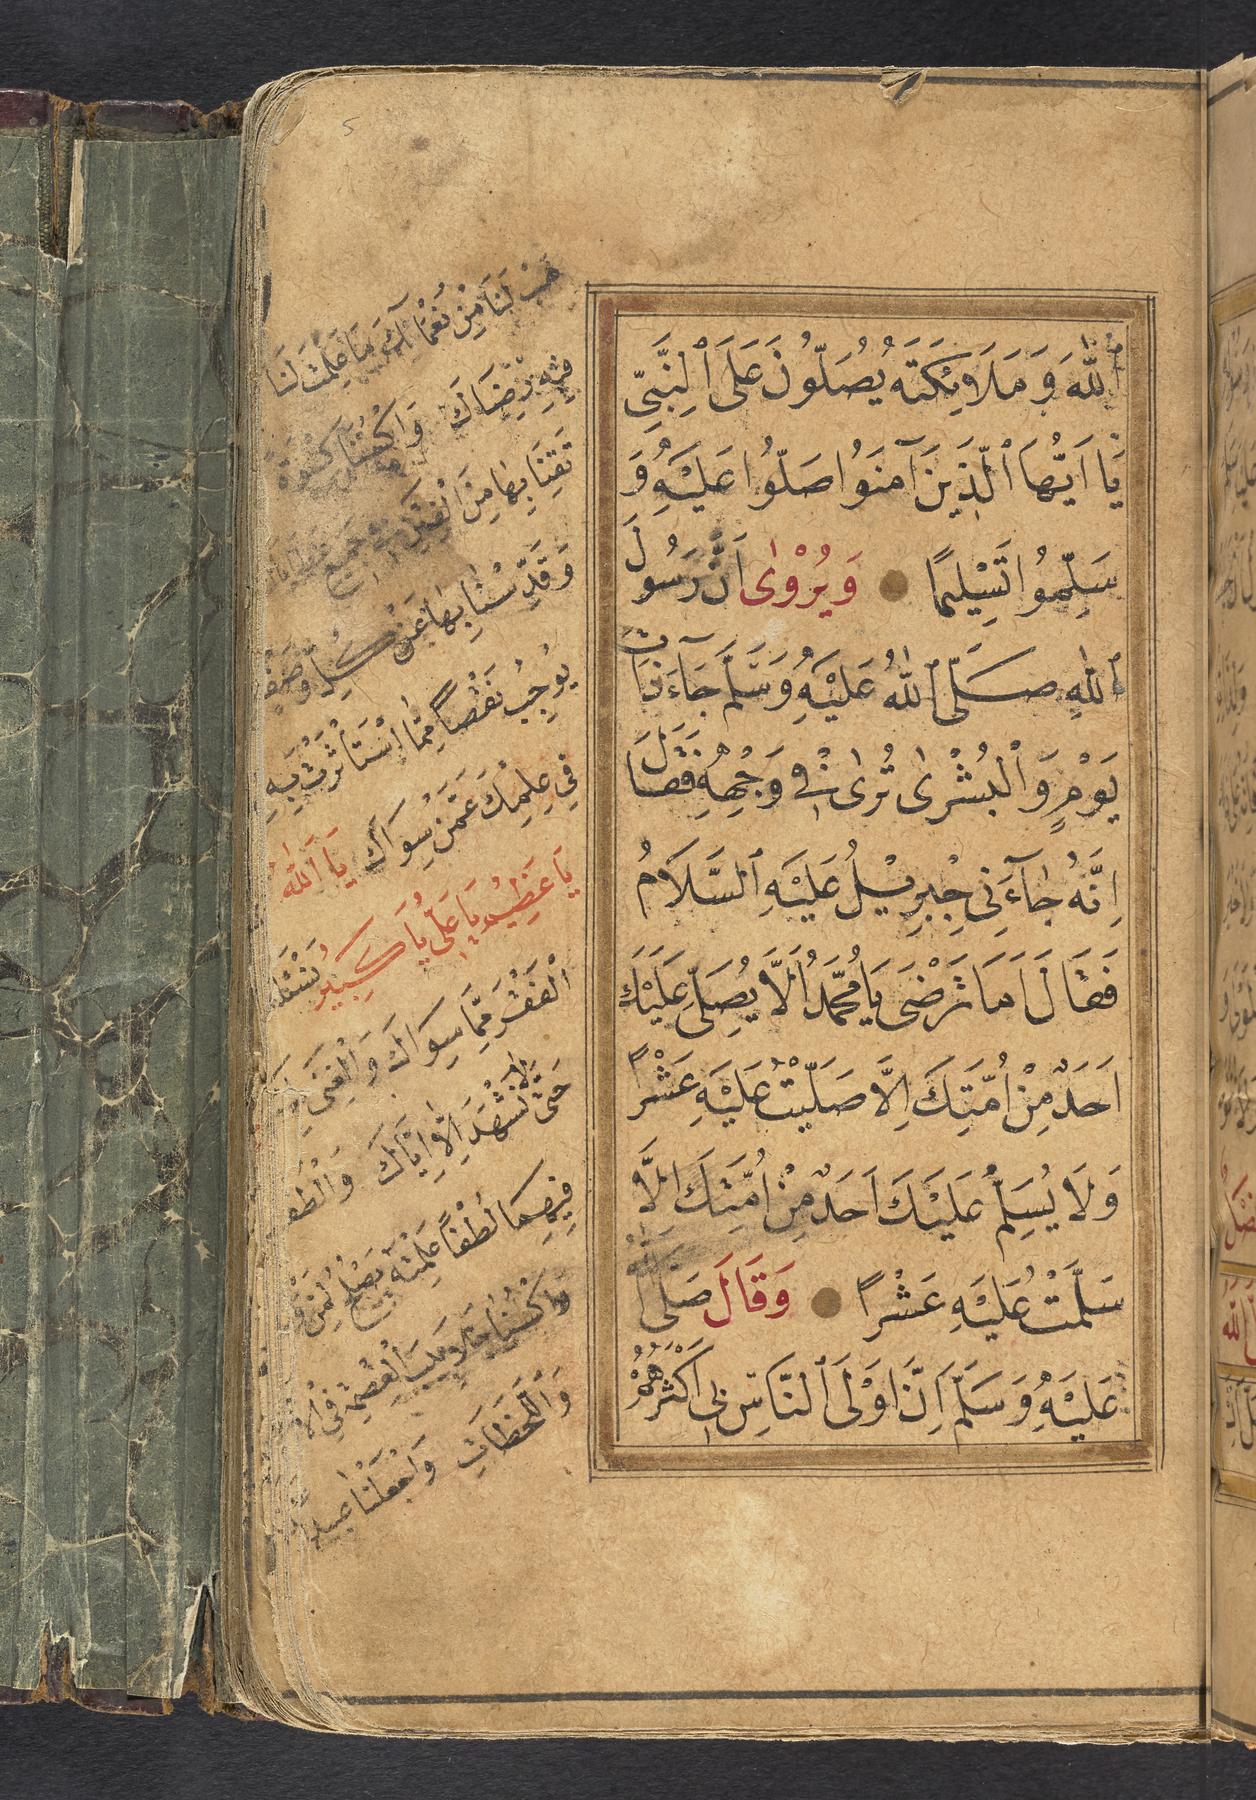 ٱللّٰهَ وَمَلَائِكَتَهُ يُصَلُّونَ عَلَى ٱلنَّبِيِّ
يَا اَيُّهَا ٱلَّذِينَ آمَنُوا صَلُّوا عَلَيْهِ وَ
سَلِّمُوا تَسْلِيمًا وَيُرْوٰى اَنَّ رَسُولَ
ٱللّٰهِ صَلَّى ٱللّٰهُ عَلَيْهِ وَسَلَّمَ جَآءَ ذَاتَ
يَوْمٍ وَٱلْبُشْرٰى تُرٰى فِي وَجْهِهِ فَقَالَ
اِنَّهُ جَآءَنِي جِبْرِيلُ عَلَيْهِ ٱلسَّلَامُ
فَقَالَ اَمَا تَرْضَى يَا مُحَمَّدُ اَلَّا يُصَلِّيَ عَلَيْكَ
اَحَدٌ مِنْ اُمَّتِكَ اِلَّا صَلَّيْتُ عَلَيْهِ عَشْرًا
وَلَا يُسَلِّمُ عَلَيْكَ اَحَدٌ مِنْ اُمَّتِكَ اِلَّا
سَلَّمْتُ عَلَيْهِ عَشْرًا وَقَالَ صَلَّى ٱللّٰهُ
عَلَيْهِ وَسَلَّمَ اِنَّ اَوْلَى ٱلنَّاسِ بِي اَكْثَرُهُمْ
هَبْ لَنَا مِنْ نُعْمَآئِكَ مَا عَلِمْتَ لَنَا
فِيهِ رِضَاكَ وَاكْسُنَا كُسْوَةً
تَقِينَا بِهَا مِنَ الْفِتَنِ فِي جَمِيعِ
وَقَدِّسْنَا بِهَا عَنْ كُلِّ وَصْفٍ
يُوجِبُ نَقْصًا مِمَّا اسْتَأْثَرْتَ بِهِ
فِي عِلْمِكَ عَمَّنْ سِوَاكَ يَا اَللّٰهُ
يَا عَظِيمُ يَا عَلِيُّ يَا كَبِيرُ نَسْئَلُكَ
الْفَقْرَ مِمَّا سِوَاكَ وَالْغِنَى
حَتَّى لَا نَشْهَدَ اِلَّا اِيَّاكَ وَالْطُفْ
فِيهِمَا لُطْفًا عَلِمْتَهُ يَصْلُحُ لِمَنْ
وَاكْسُنَا جَلَابِيبَ الْعِصْمَةِ فِي
وَاللَّحَظَاتِ وَاجْعَلْنَا عَبِيدًا